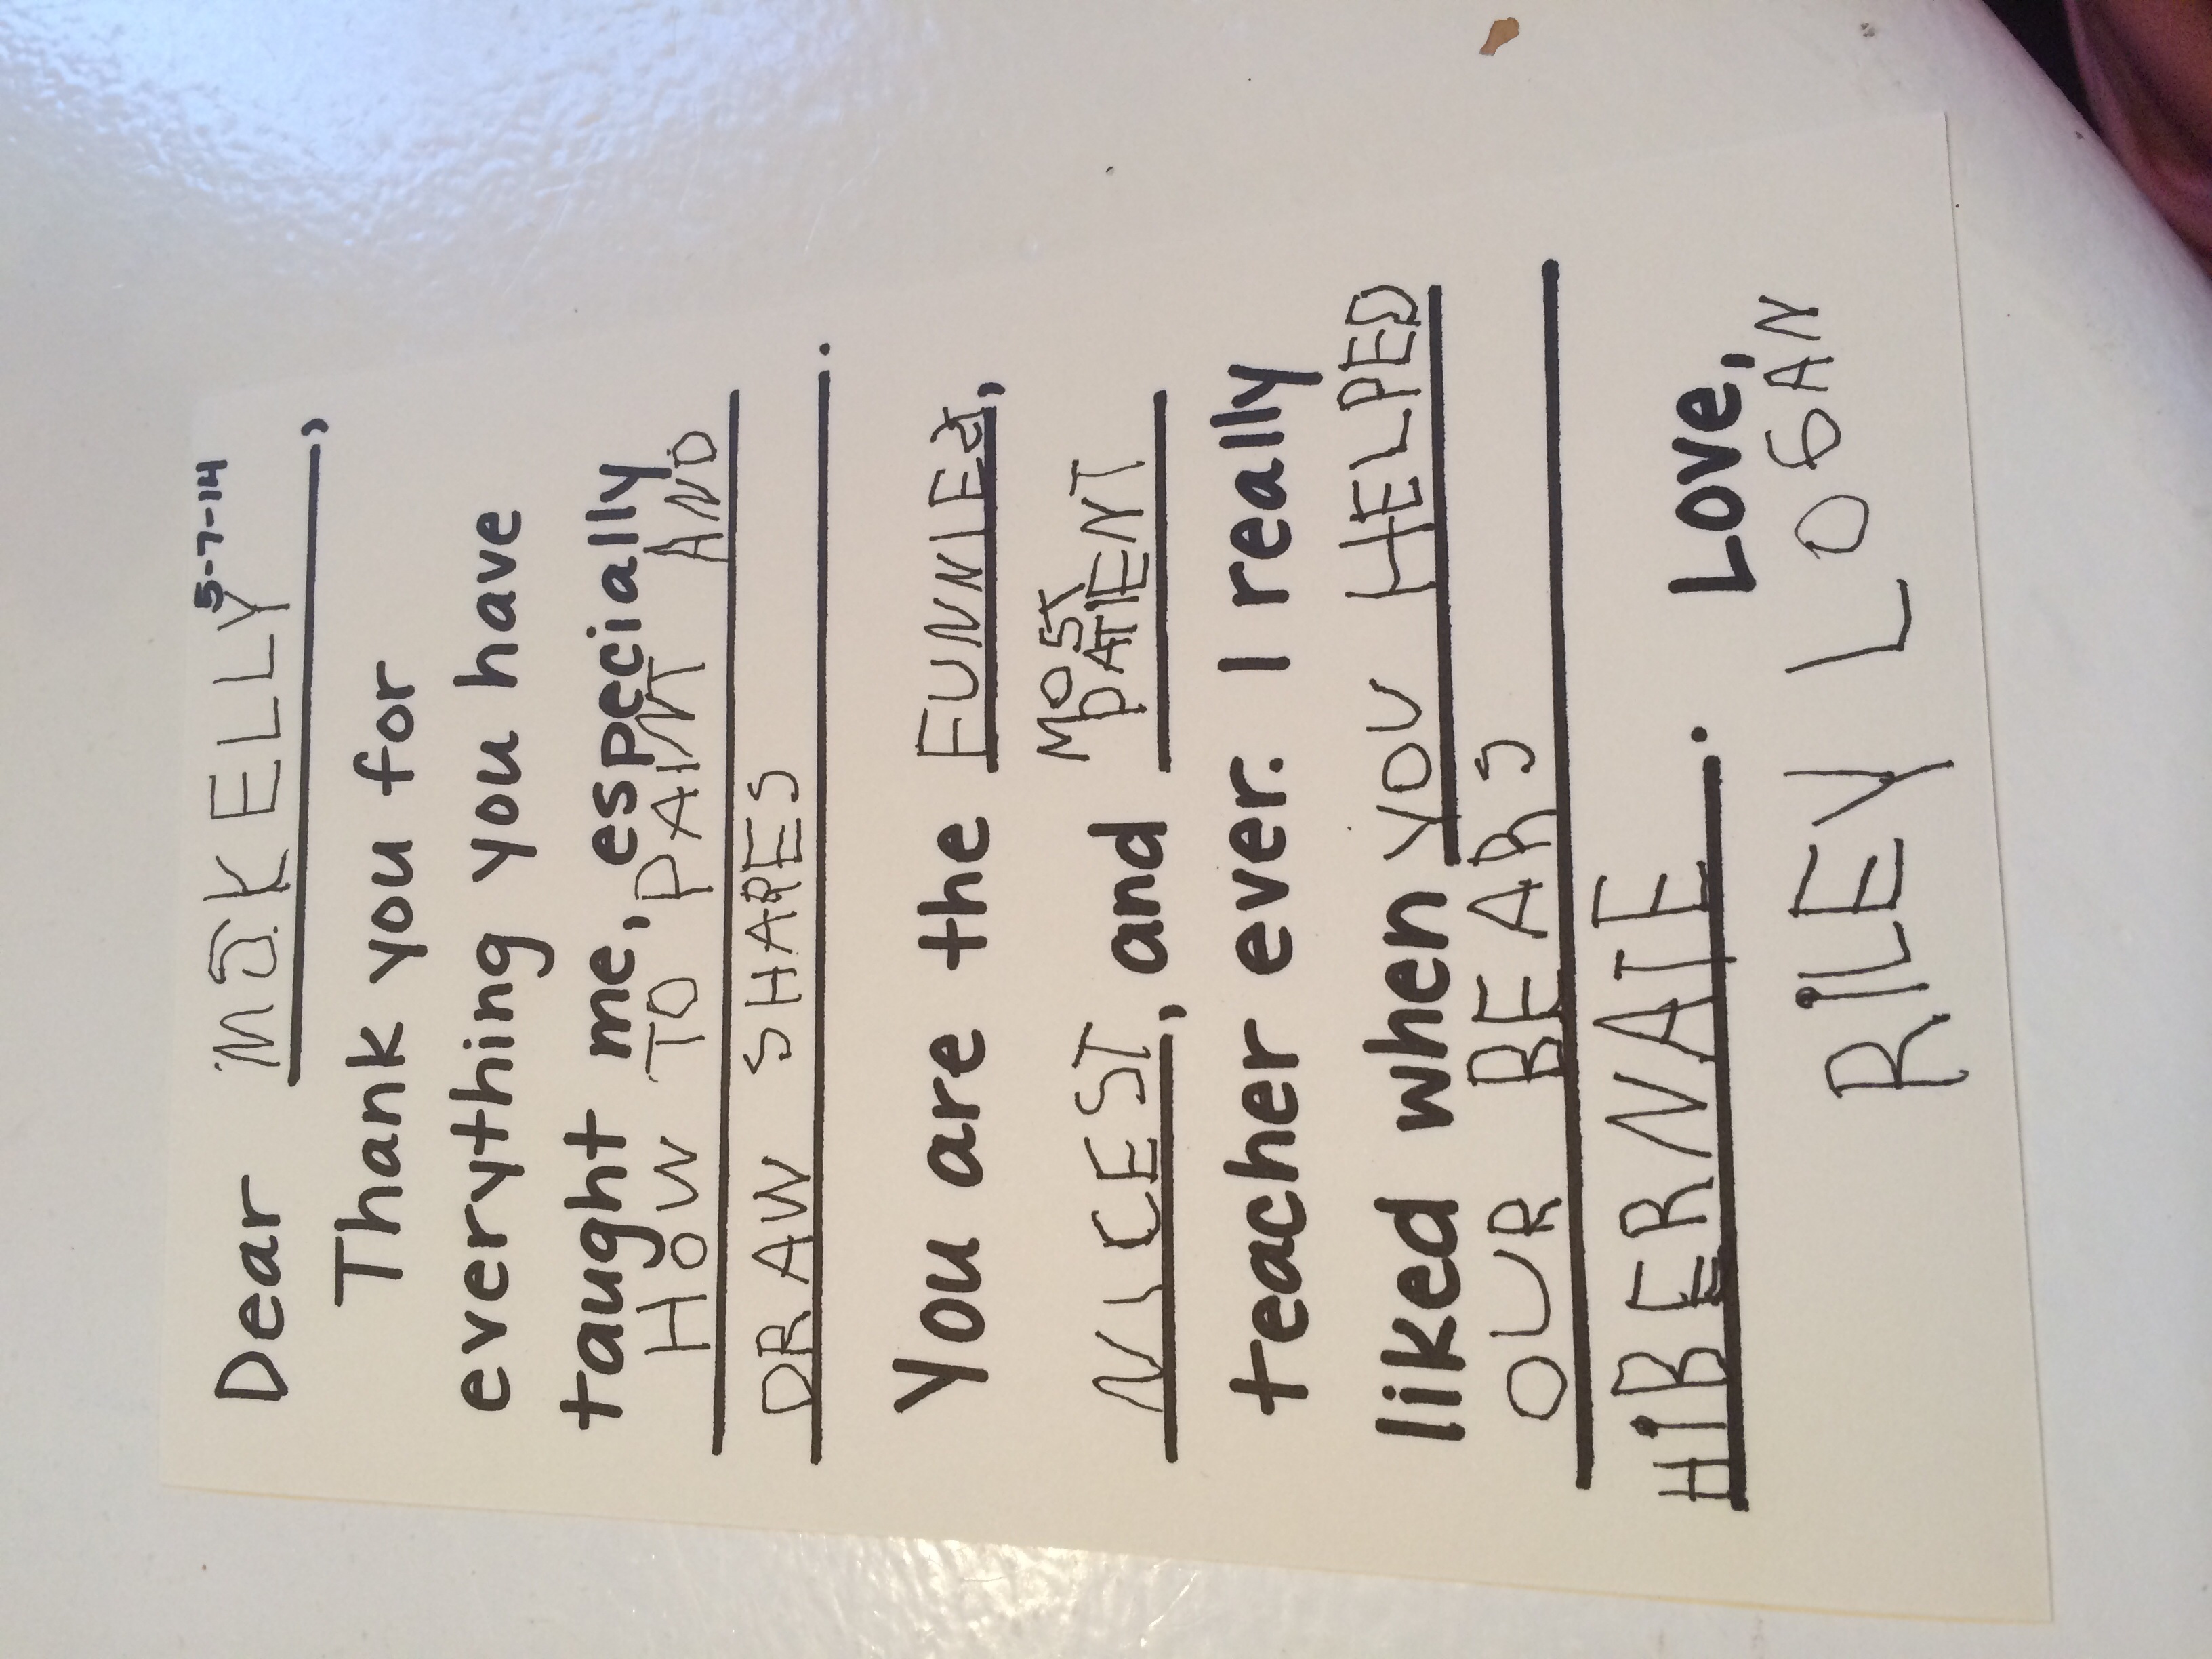 5-7-14
Dear MS. KELLY,
Thank you for
everything you have
taught me, especially
HOW TO PAINT AND
DRAW SHAPES.
You are the FUNNIEST,
MOST
NICEST, and PATIENT
teacher ever. I really
liked when YOU HELPED
OUR BEARS
HIBERNATE.
Love,
RILEY LOGAN